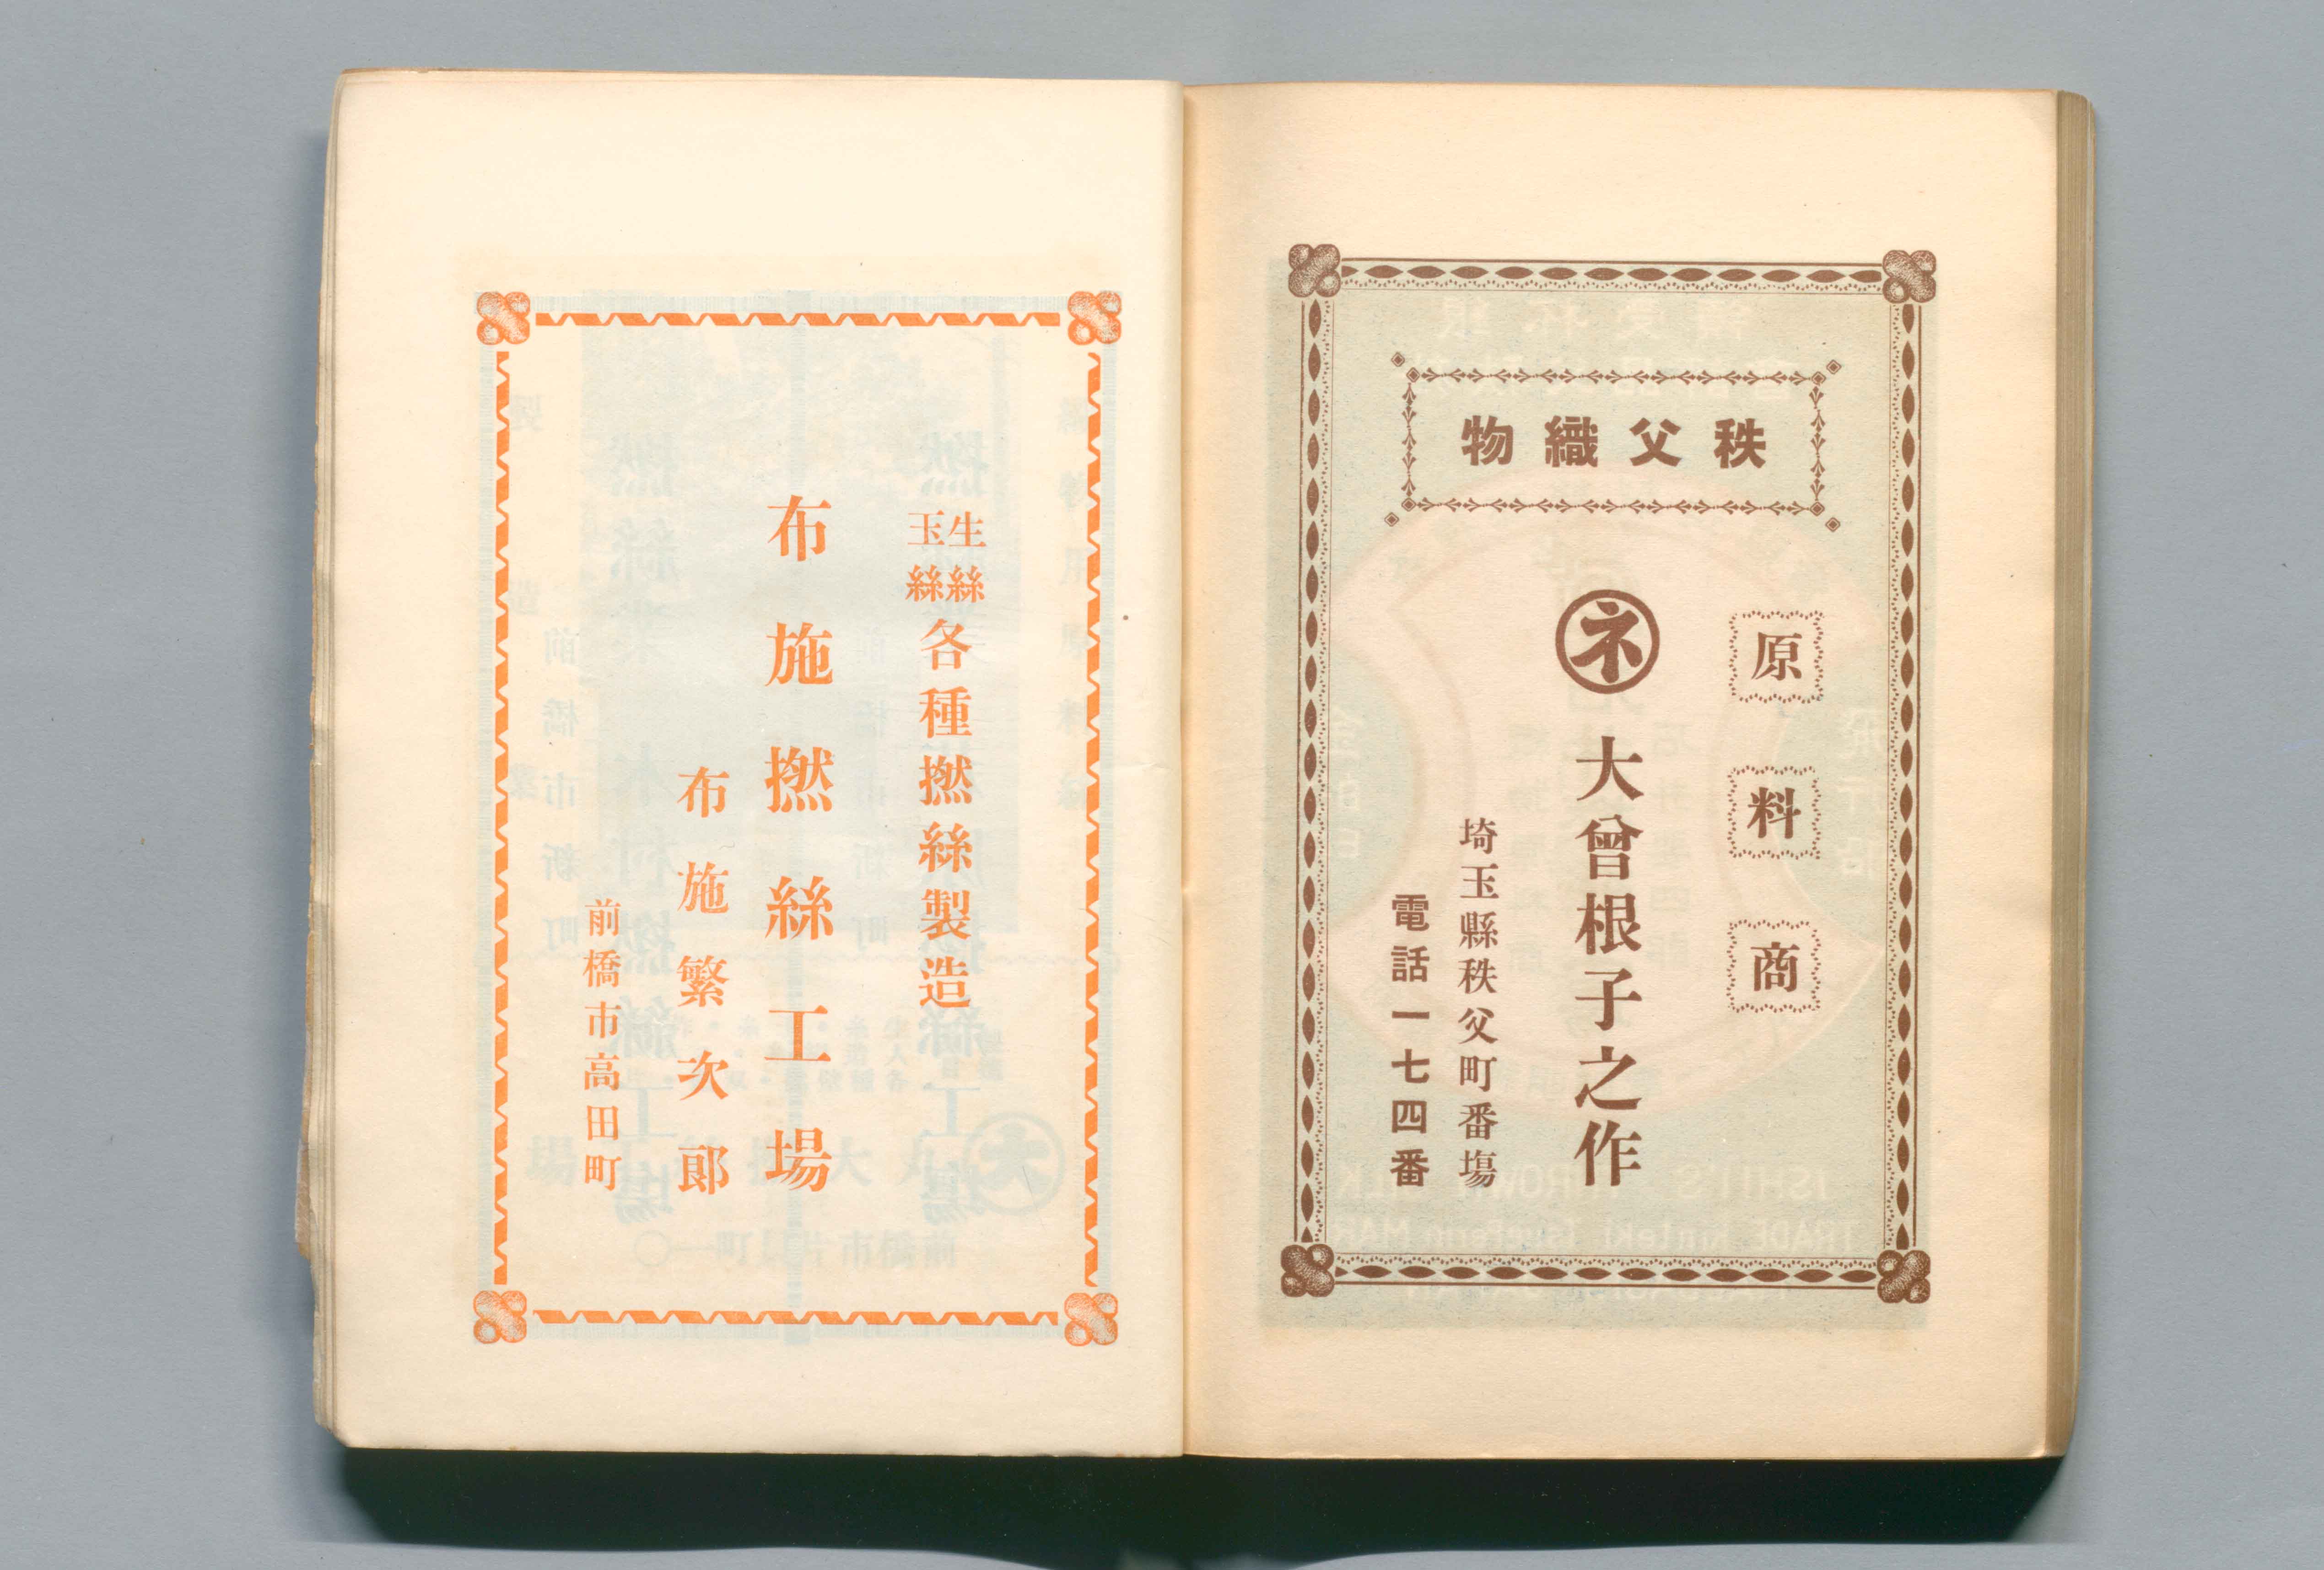 秩父織物
原料商
ネ 大曾根子之作
埼玉縣秩父町番塲
電話一七四番
生絲
玉絲
各種撚絲製造
布施撚絲工場
布施繁次郎
前橋市高田町